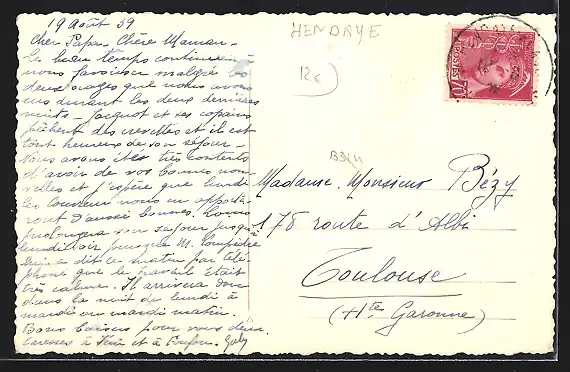 19 Août 39
HENDAYE
Cher Papa - Chère Maman -
Le beau temps continue à
nous favoriser malgré les
deux orages que nous avons
eus durant les deux dernières
nuits - Jacquot et ses copains
pêchent des crevettes et il est
tout heureux de son séjour -
Nous avons été très contents
d'avoir de vos bonnes nou-
velles et j'espère que lundi
les nous en apporte-
ront d'aussi bonnes.
prolongera son séjour jusqu'à
lundi soir puisque M.
lui a dit ce matin par télé-
phone que le travail était
très calme. Il arrivera donc
dans la nuit de lundi à
mardi ou mardi matin.
Bons baisers pour vous deux
Caresses à et à Gaby
POSTES
Madame, Monsieur Bézy
178 route d'Albi
Toulouse
(Hte Garonne)